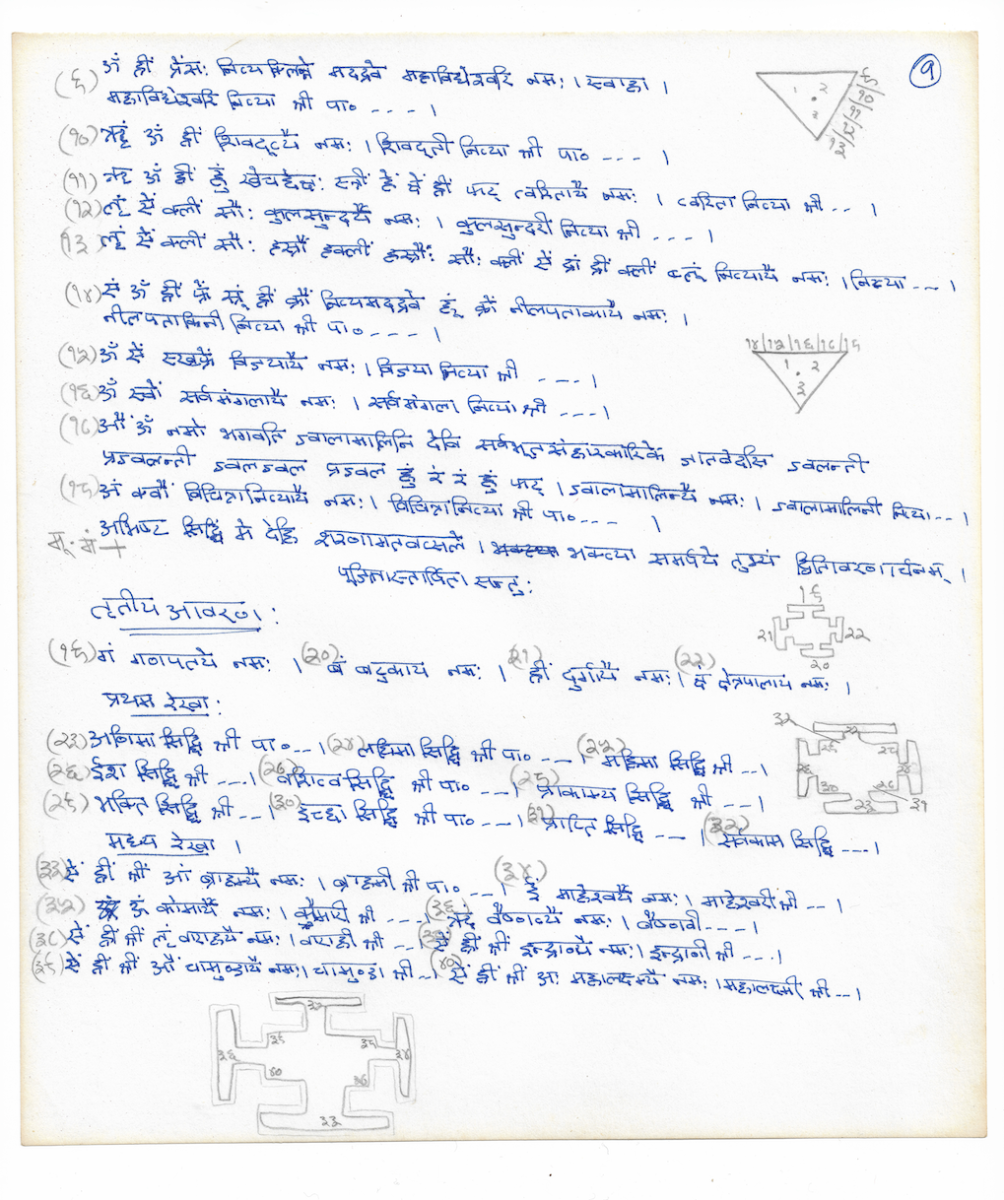 १
(९) ॐ ह्रीं फ्रेंसः नित्यक्लिन्ने मदद्रवे महाविद्येश्वरि नमः । स्वाहा ।
महाविद्येश्वरि नित्या श्री पा० ---- ।
(१०) ॐ ह्रीं शिवदूत्यै नमः । शिवदूती नित्या श्री पा० --- ।
(११) ॐ ह्रीं हुं खेचछेक्षः स्त्रीं हुं क्षें ह्रीं फट् त्वरितायै नमः । त्वरिता नित्या श्री -- ।
(१२) लृं ऐं क्लीं सौः कुलसुन्दर्यै नमः । कुलसुन्दरी नित्या श्री --- ।
(१३) लॄं ऐं क्लीं सौः सौः क्लीं ऐं द्रां द्रीं क्लीं ब्लूं नित्यायै नमः । नित्या --- ।
(१४) एं ॐ ह्रीं फ्रें स्रूं ह्रीं क्रों नित्यमदद्रवे हूं क्रों नीलपताकायै नमः ।
नीलपताकिनी नित्या श्री पा० ---- ।
१४|१५|१६|१७|१८
१ २
३
(१५) ॐ ऐं विजयायै नमः । विजया नित्या श्री --- ।
(१६) ॐ स्वों सर्वमंगलायै नमः । सर्वमंगला नित्या श्री --- ।
(१७) औं ॐ नमो भगवति ज्वालामालिनि देवि सर्वभूतसंहारकारिके जातवेदसि ज्वलन्ती
प्रज्वलन्ती ज्वलज्वल प्रज्वल हुं रं रं हुं फट् । ज्वालामालिन्यै नमः । ज्वालामालिनी नित्या -- ।
(१८) अं च्कौं विचित्रानित्यायै नमः । विचित्रानित्या श्री पा० --- ।
मू. मं + अभिष्ट सिद्धिं मे देहि शरणागतवत्सले । भक्त्या समर्पये तुभ्यं द्वितिवरणार्चनम् ।
पूजितास्तर्पिता सन्तुः
तृतीय आवरण :
१९
२१ २२
२०
(१९) गं गणपतये नमः । (२०) बं बटुकाय नमः । (२१) ह्रीं दुर्गायै नमः । (२२) क्षं क्षेत्रपालाय नमः ।
प्रथम रेखा :
(२३) अणिमा सिद्धि श्री पा० --- । (२४) लघिमा सिद्धि श्री पा० --- । (२५) महिमा सिद्धि श्री -- ।
(२६) ईश सिद्धि श्री --- । (२७) वशित्व सिद्धि श्री पा० --- । (२८) प्राकाम्य सिद्धि श्री -- ।
(२९) भक्ति सिद्धि श्री -- । (३०) इच्छा सिद्धि श्री पा० --- । (३१) प्राप्ति सिद्धि -- । (३२) सर्वकाम सिद्धि --- ।
मध्य रेखा ।
(३३) ऐं ह्रीं श्रीं आं ब्राह्म्यै नमः । ब्राह्मी श्री पा० -- । (३४) ईं माहेश्वर्यै नमः । माहेश्वरी श्री -- ।
(३५) ऊं कौमार्यै नमः । कौमारी श्री --- । (३६) ॠं वैष्णव्यै नमः । वैष्णवी ---- ।
(३७) ऐं ह्रीं श्रीं लॄं वाराह्यै नमः । वाराही श्री -- । (३८) ऐं ह्रीं श्रीं इन्द्राण्यै नमः । इन्द्राणी श्री --- ।
(३९) ऐं ह्रीं श्रीं औं चामुण्डायै नमः । चामुण्डा श्री -- । (४०) ऐं ह्रीं श्रीं अः महालक्ष्म्यै नमः । महालक्ष्मी श्री -- ।